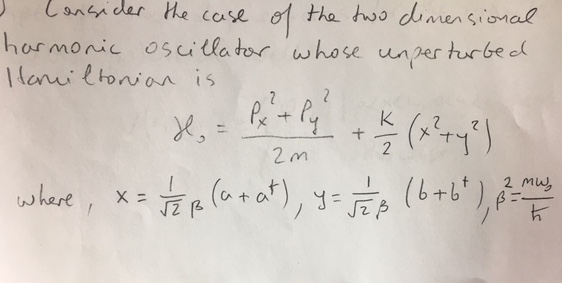 ) Consider the case of the two dimensional
harmonic oscillator whose unperturbed
Hamiltonian is
ℋ₀ = (Pₓ² + P_y²) / 2m + K/2 (x² + y²)
where, x = 1/√2 β (a + a†), y = 1/√2 β (b + b†), β² = mω₀/ħ